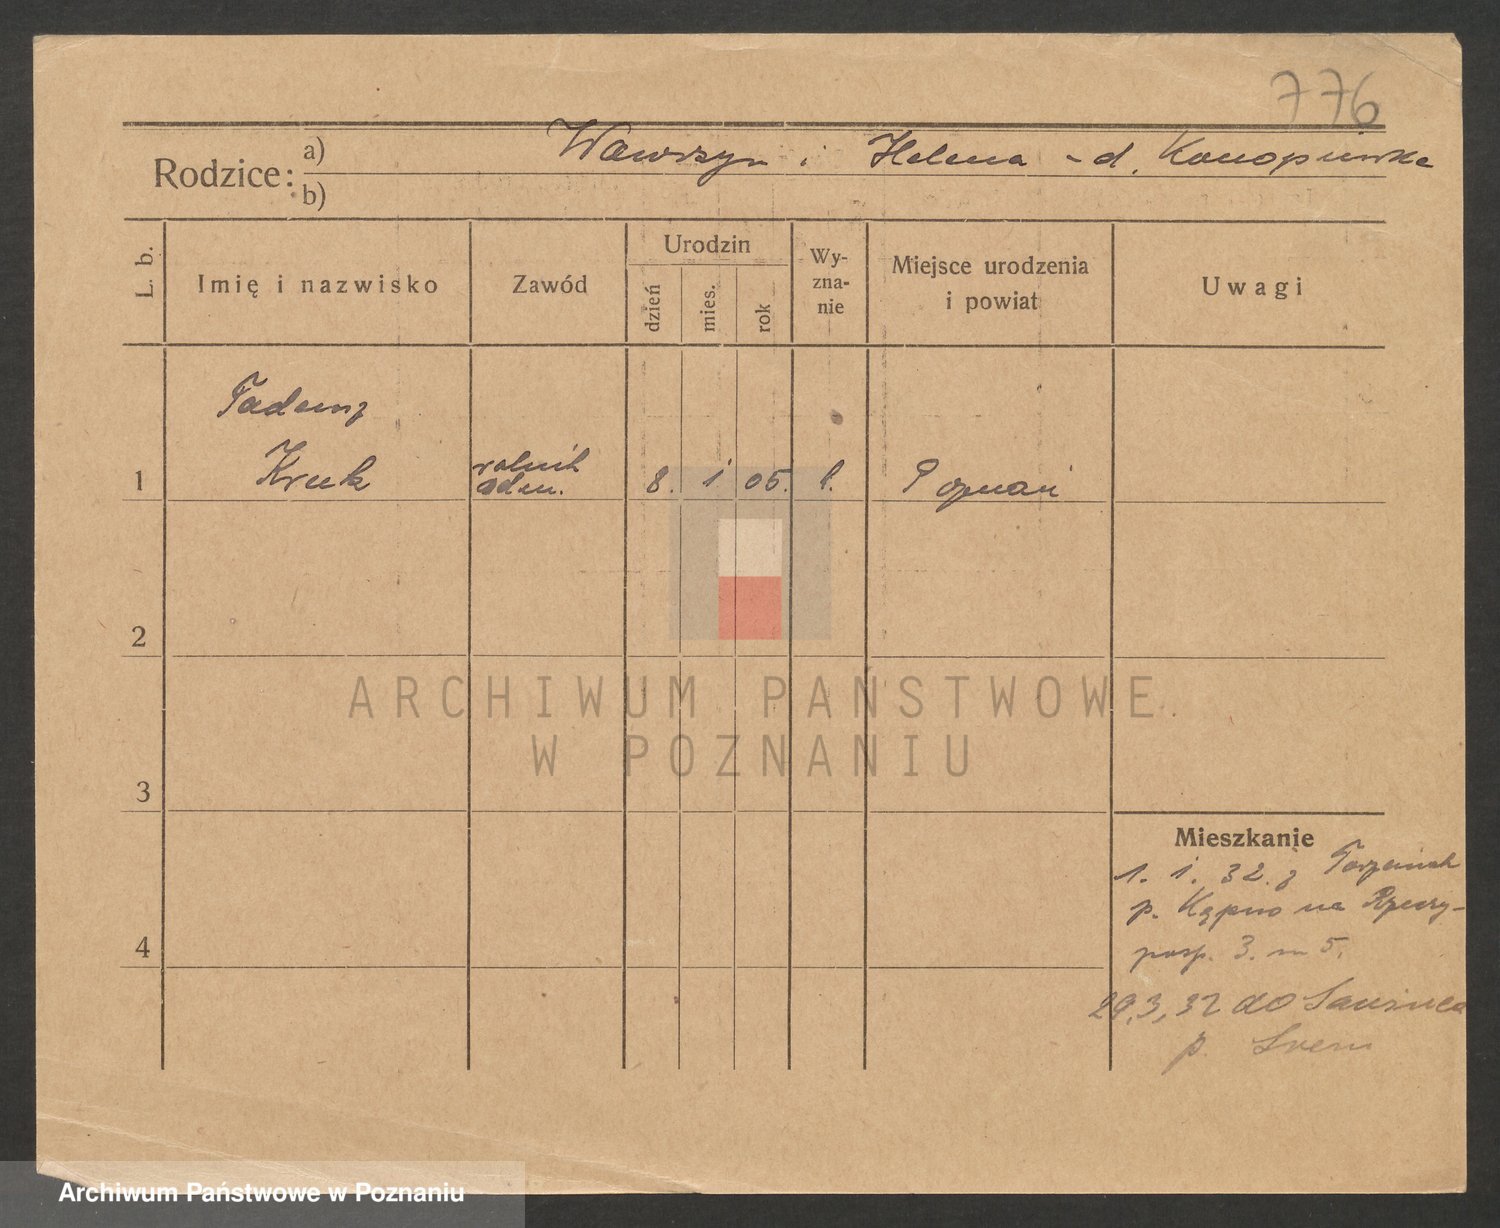 776
Rodzice: a) Wawrzyn i Helena - d. Konopińska
b)
L. b.
Imię i nazwisko
Zawód
Urodzin
dzień
mies.
rok
Wy-
zna-
nie
Miejsce urodzenia
i powiat
Uwagi
Tadeusz
1 Kruk
rolnik
adm.
8. i 05. Poznań
2
3
Mieszkanie
1. i. 32. z
p. Kępno na Rzeczy-
4
posp. 3. m 5.
29.3.32 do
p. Śrem
ARCHIWUM PAŃSTWOWE
W POZNANIU
Archiwum Państwowe w Poznaniu